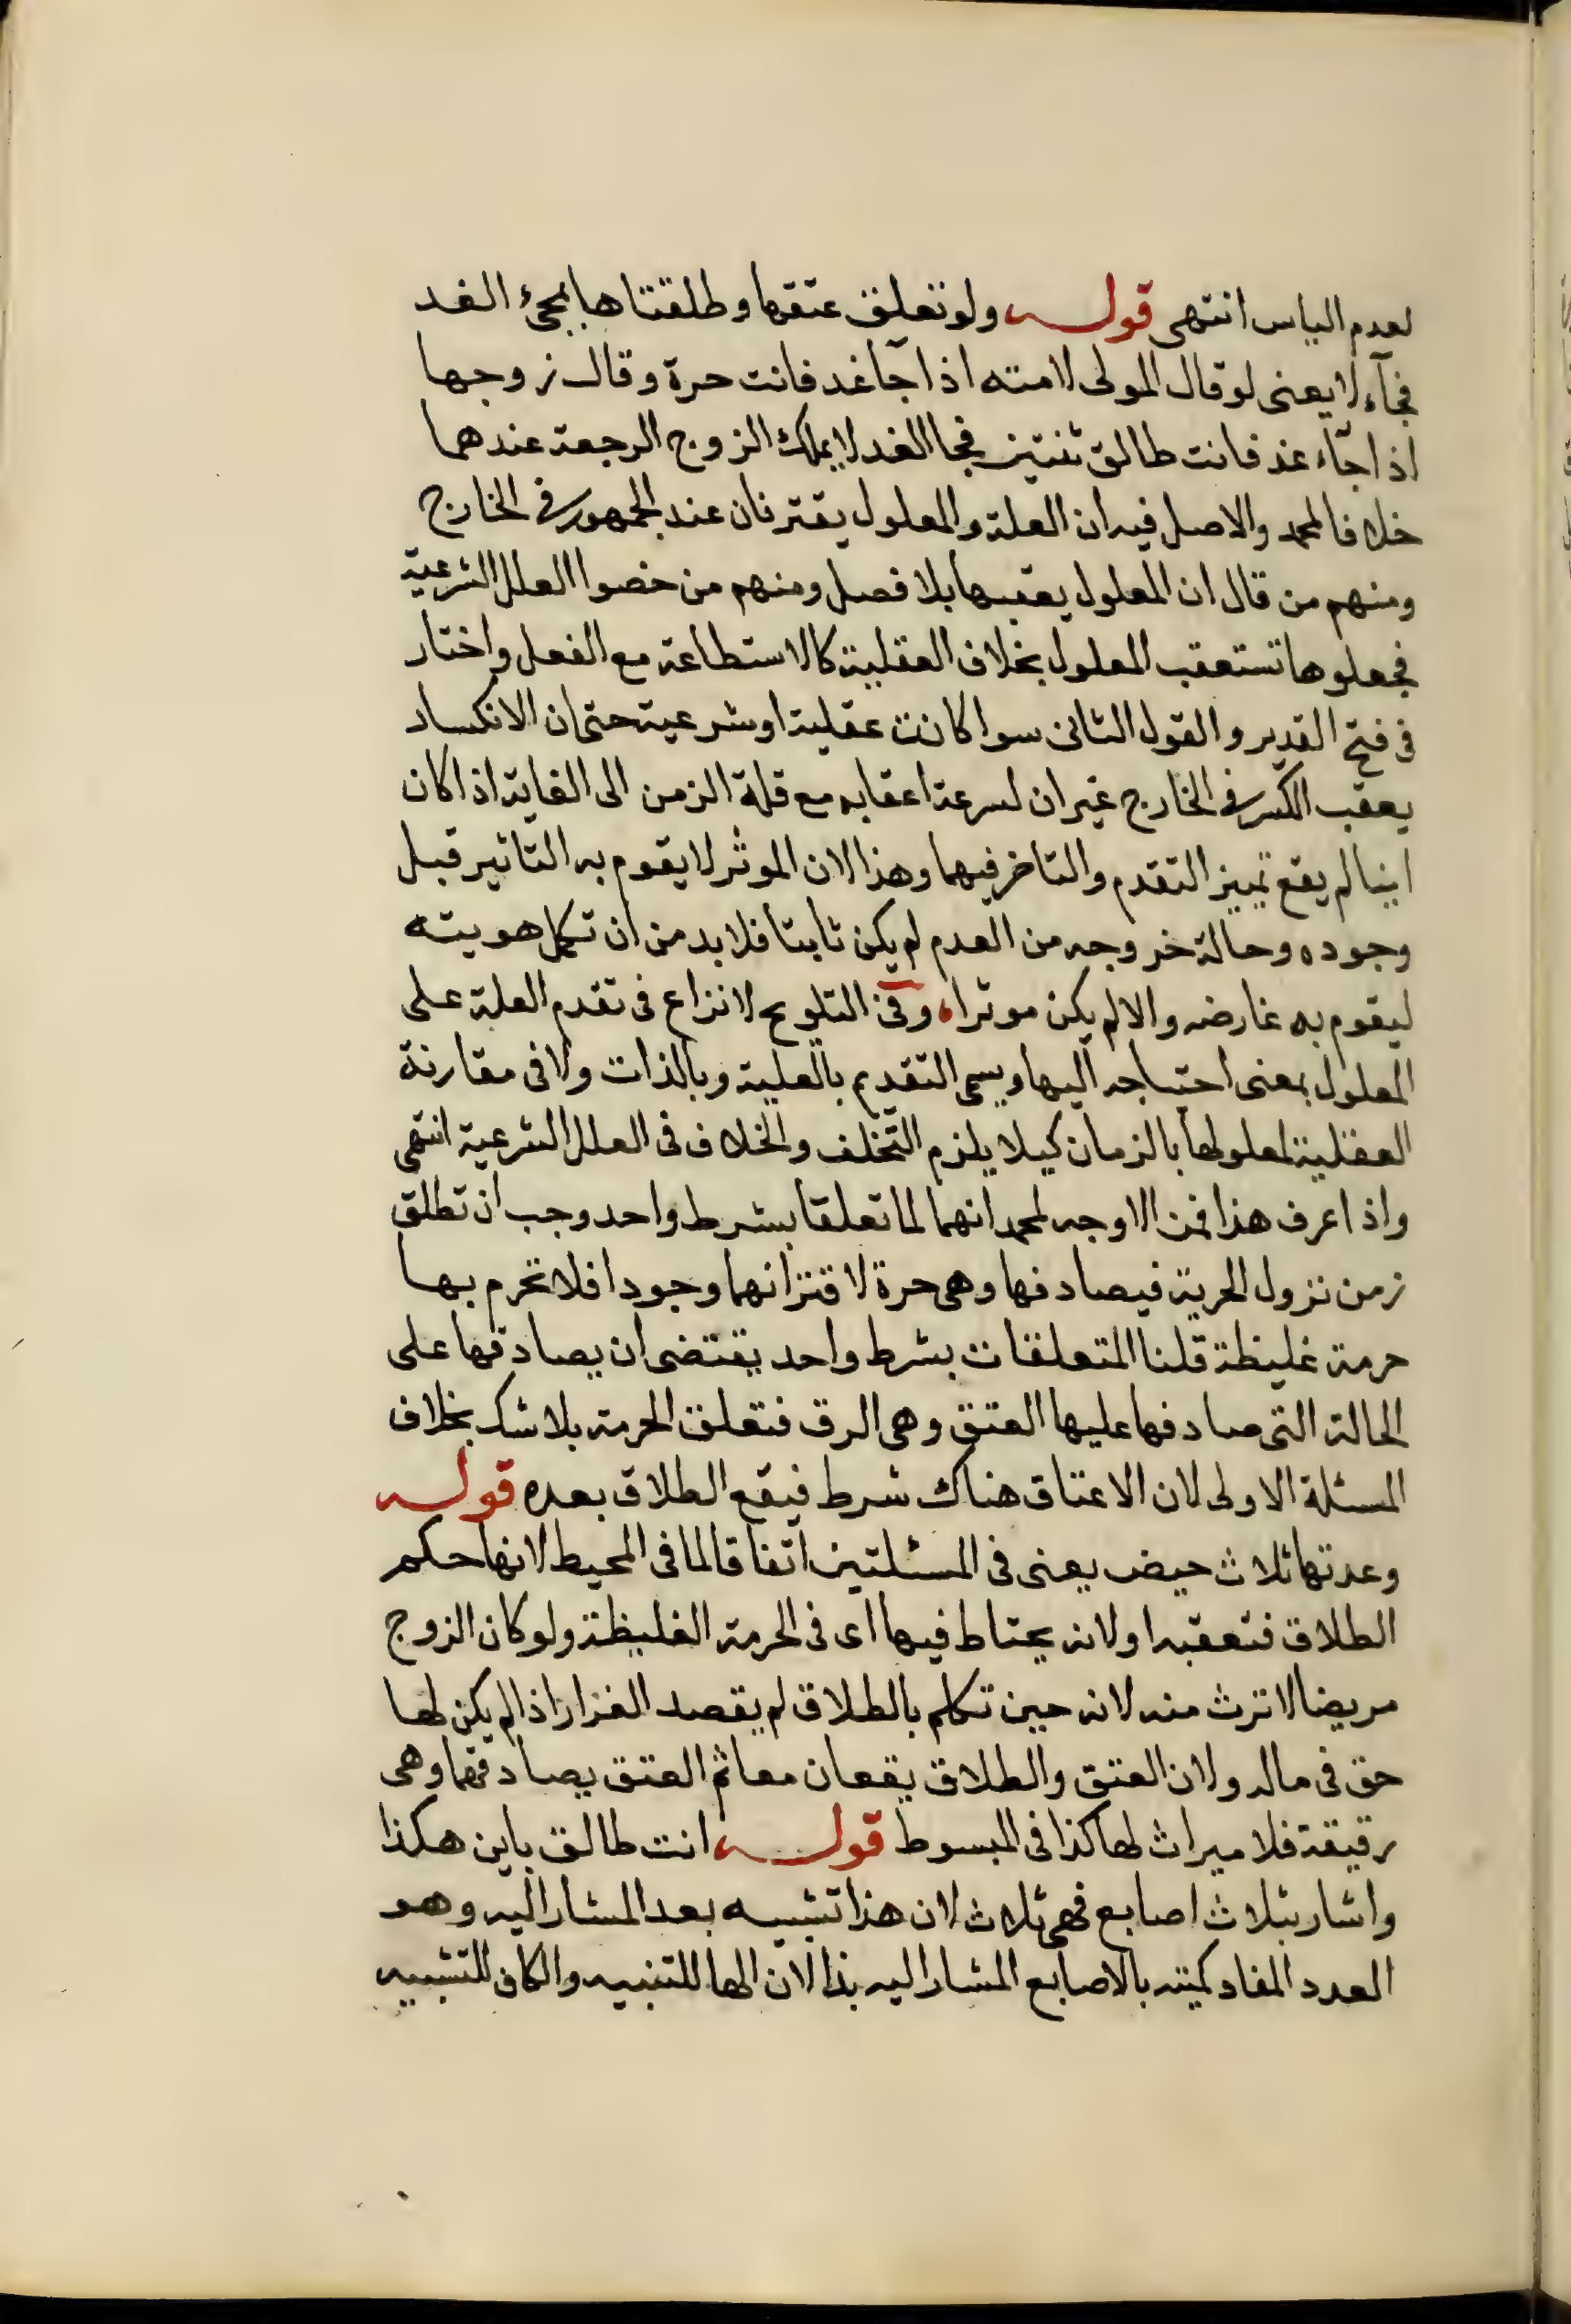 لعدم الياس انتهى قوله ولو تعلق عتقها وطلقتاها بمجئ الغد
فجآء لا يعنى لو قال المولى لامته اذا جآ غد فانت حرة وقال زوجها
اذا جآء غد فانت طالق ثنتين فجا الغد لا يملك الزوج الرجعة عندهما
خلافا لمحمد والاصل فيه ان العلة والمعلول يقترنان عند الجمهور في الخارج
ومنهم من قال ان المعلول يعقبها بلا فصل ومنهم من خصوا العلل الشرعية
فجعلوها تستعقب المعلول بخلاف العقلية كالاستطاعة مع الفعل واختار
فى فتح القدير والقول الثانى سوا كانت عقلية او شرعية حتى ان الانكسار
يعقب الكسر في الخارج غير ان لسرعة اعقابه مع قلة الزمن الى الغاية اذا كان
اينا لم يقع تمييز التقدم والتاخر فيهما وهذا لان الموثر لا يقوم به التاثير قبل
وجوده وحالة خروجه من العدم لم يكن ثابتا فلا بد من ان تكمل هويته
ليقوم به عارضه والا لم يكن موثرا، وفى التلويح لا نزاع فى تقدم العلة على
المعلول بمعنى احتياجه اليها ويسمى التقدم بالعلية وبالذات ولا فى مقارنة
العقلية لمعلولها بالزمان كيلا يلزم التخلف والخلاف فى العلل الشرعية انتهى
واذا عرف هذا فمن الاوجه لمحمد انهما لما تعلقا بشرط واحد وجب ان تطلق
زمن نزول الحرية فيصادفها وهى حرة لاقترانهما وجودا فلا تحرم بها
حرمة غليظة قلنا المتعلقات بشرط واحد يقتضى ان يصادفها على
الحالة التى صادفها عليها العتق وهى الرق فتعلق الحرمة بلا شك بخلاف
المسئلة الاولى لان الاعتاق هناك شرط فيقع الطلاق بعده قوله
وعدتها ثلاث حيض يعنى فى المسئلتين اتفاقا لما فى المحيط لانها حكم
الطلاق فتعقبه او لانه يحتاط فيها اى فى الحرمة الغليظة ولو كان الزوج
مريضا لا ترث منه لانه حين تكلم بالطلاق لم يقصد الفرار اذ لم يكن لها
حق فى ماله ولان العتق والطلاق يقعان معا ثم العتق يصادفهما وهى
رقيقة فلا ميراث لها كذا فى المبسوط قوله انت طالق باين هكذا
واشار بثلاث اصابع فهى ثلاث لان هذا تشبيه بعد المشار اليه وهو
العدد المفاد كميته بالاصابع المشار اليه بذا لان الها للتنبيه والكاف للتشبيه